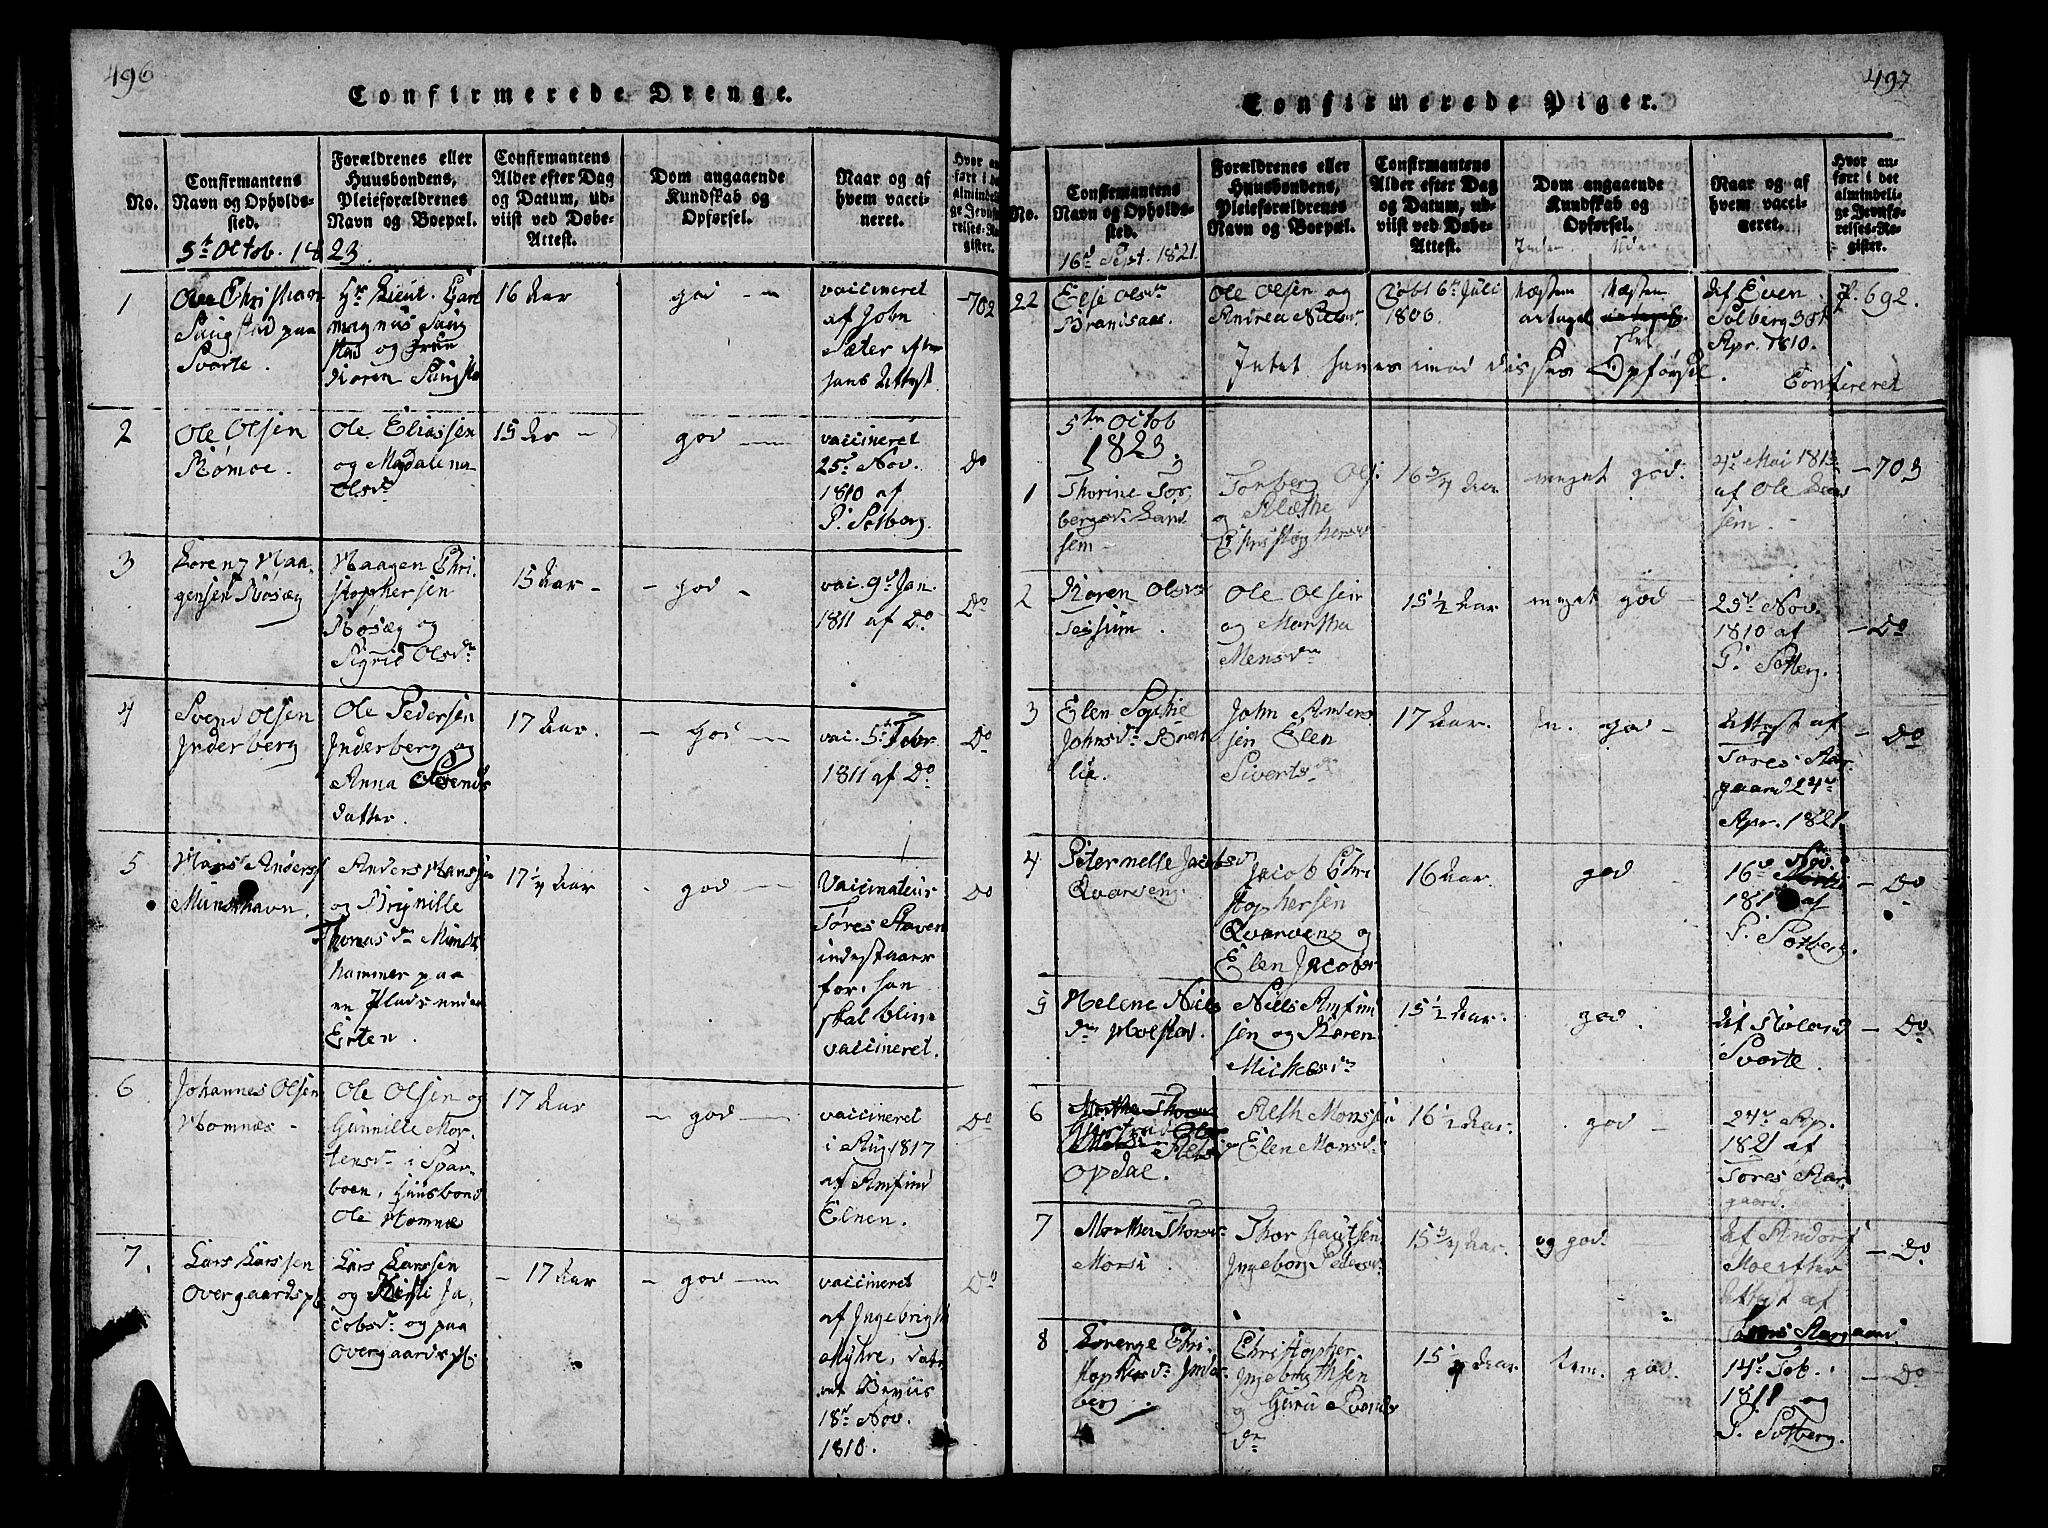 496
Confirmerede Drenge.
No.
Confirmantens
Navn og Opholds-
sted.
Forældrenes eller
Huusbondens,
Pleieforældrenes
Navn og Boepæl.
Confirmantens
Alder efter Dag
og Datum, ud-
viist ved Døbe-
Attest.
Dom angaaende
Kundskab og
Opførsel.
Naar og af
hvem vacci-
neret.
Hvor an-
ført i det
almindeli-
ge Jevnfø-
relses-Re-
gister.
5t Octob. 1823.
1
Ole Christian
Saugstad paa
Svarte.
Hr Lieut. Carl
Magnus Saug
stad og
Karen Saugsta
16 Aar
god
vaccineret
af John
Sæter efter
hans Attest
702
2
Ole Olsen
Rømoe.
Ole Eliassen
og Magdalena
Olsdr
15 Ar
god
vaccineret
25d Nov.
1810 af
P. Solberg.
Do
3
Lorenz Haa-
gensen Røsæg
Haagen Chri-
stophersen
Røsæg og
Sigrid Olsdr
15 Aar
god
vac. 9d Jan.
1811 af Do.
Do
4
Svend Olsen
Inderberg
Ole Pedersen
Inderberg og
Anna
datter.
17 Aar.
god
vac. 5t Febr
1811 af Do
Do
5
Hans Anders
Munkhavn.
Anders Hansen
og Brynille
Thomasdr Munk
hammer paa
en Plads under
Eiten.
17 1/4 Aar
god
Vaccinateur
Tøres Staven
indestaaer
for, han
skal blive
vaccineret.
Do
6
Johannes Olsen
Homnæs
Ole Olsen og
Gunnille Mor-
tensdr i Spar-
boen, Huusbond
Ole Homnæs
17 Aar
god
vaccineret
i Aug. 1817
af Amfind
Elnen.
Do
7.
Lars Larssen
Overgaards pl
Lars Larssen
og Kirsti Ja-
cobsdr og paa
Overgaards pl.
17 Aar
god
vaccineret
af Ingebrigt
Myhre, date-
ret Beviis
18d Nov.
1810.
Do
497
Confirmerede Piger.
No.
Confirmantens
Navn og Opholds-
sted.
Forældrenes eller
Huusbondens,
Pleieforældrenes
Navn og Boepæl.
Confirmantens
Alder efter Dag
og Datum, ud-
viist ved Døbe-
Attest.
Dom angaaende
Kundskab og
Opførsel.
Inden. Uden
Naar og af
hvem vacci-
neret.
Hvor an-
ført i det
almindeli-
ge Jevnfø-
relses-Re-
gister.
16d Sept. 1821.
22
Else Olsdr
Brandsaas.
Ole Olsen og
Andrea
Døbt 6te Juli
1806.
Næsten
Næsten
slet
Af Even
Solberg 30t
Apr. 1810.
P. 692.
Intet haves imod disses Opførsel.
Confereret
5te Octob
1823.
1
Thorine Tor
bergsdr Land
sem
Torberg Ols.
og Melethe
Christophersdr
16 3/4 Aar
meget god.
4d Mai 1813
af Ole Land
sem.
703
2
Karen Olsdr
Tessum.
Ole Olsen
og Martha
Monsdr
15 1/2 Aar
meget god
25d Nov.
1810 af
P. Solberg.
Do
3
Elen Sophie
Johnsdr Breet
lie.
John Anders
sen Elen
Sivertsdr
17 Aar.
god
Attest af
Tores Aar-
gaard 24d
Apr. 1821.
Do
4
Peternelle Jacobsdr
Qvarveng.
Jacob Chri
stophersen
Qvarveng og
Elen Jacobsdr
16 Aar.
god
16d Nov.
181 af
P. Solberg.
Do
5
Helene Niels
dr Holstad.
Niels Amfin
sen og Karen
Mickelsdr
15 1/2 Aar.
god.
Af Roland
Svarte.
Do
6
Opdal.
Reth Monssen
og Elen Monsdr
16 1/2 Aar.
god
24d Ap.
1821 af
Tores Aar-
gaard.
7
Marthea Thorsdr
Morsi.
Thor Gautsen
Ingeborg Pedersdr
15 3/4 Aar.
og god.
Af Andors
Moe efter
Attest af
Tores Aargaard.
Do
8
Lorenze Chri-
stophersdr Inder
berg
Christopher
Ingebrigthsen
og Guru
dr
15 Aar
tem. god.
14d Feb.
1811 og
P. Solberg.
Do